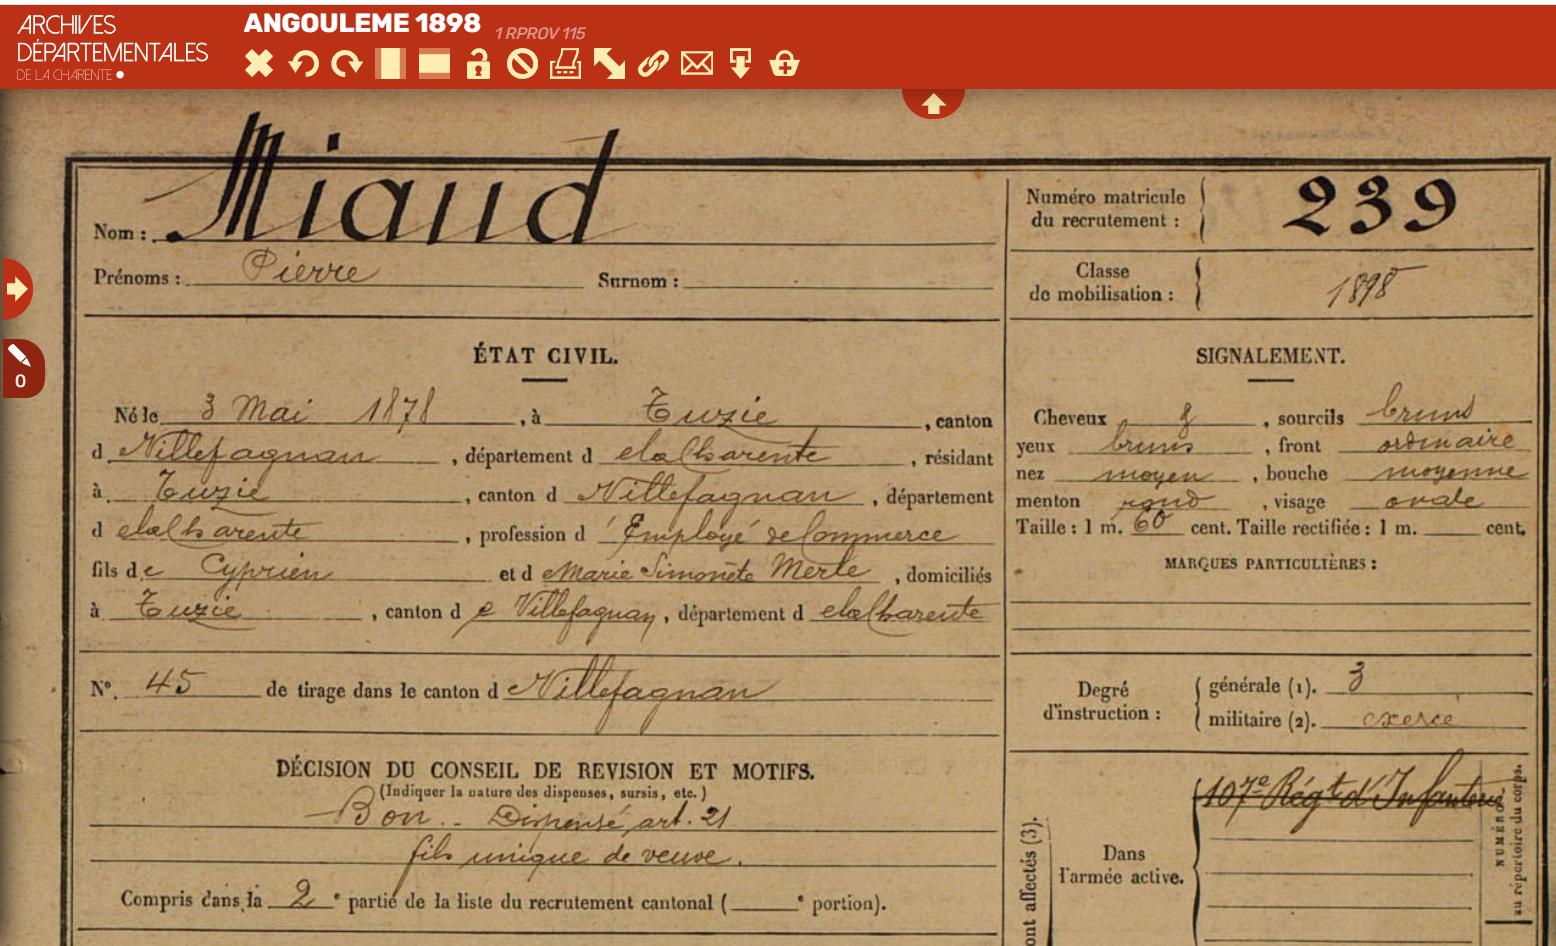 ARCHIVES
DÉPARTEMENTALES
DE LA CHARENTE
ANGOULEME 1898
1 RPROV 115
0
Nom : Miaud
Prénoms : Pierre Surnom :
Numéro matricule
du recrutement : 239
Classe
de mobilisation : 1898
ÉTAT CIVIL.
Né le 3 Mai 1878, à Tuzie, canton
d Villefagnan, département d e la Charente, résidant
à Tuzie, canton d Villefagnan, département
d e la Charente, profession d'Employé de Commerce
fils de Cyprien et d e Marie Simonète Merle, domiciliés
à Tuzie, canton d e Villefagnan, département d e la Charente
N° 45 de tirage dans le canton d e Villefagnan
DÉCISION DU CONSEIL DE REVISION ET MOTIFS.
(Indiquer la nature des dispenses, sursis, etc.)
Bon. - Dispensé art. 21
fils unique de veuve.
Compris dans la 2e partie de la liste du recrutement cantonal ( e portion).
SIGNALEMENT.
Cheveux , sourcils bruns
yeux bruns, front ordinaire
nez moyen, bouche moyenne
menton rond, visage ovale
Taille : 1 m. 60 cent. Taille rectifiée : 1 m. cent.
MARQUES PARTICULIÈRES :
Degré
d'instruction :
générale (1). 3
militaire (2). exercé
ont affectés (3).
Dans
l'armée active.
107e Régt d'Infanterie
NUMÉRO
au répertoire du corps.